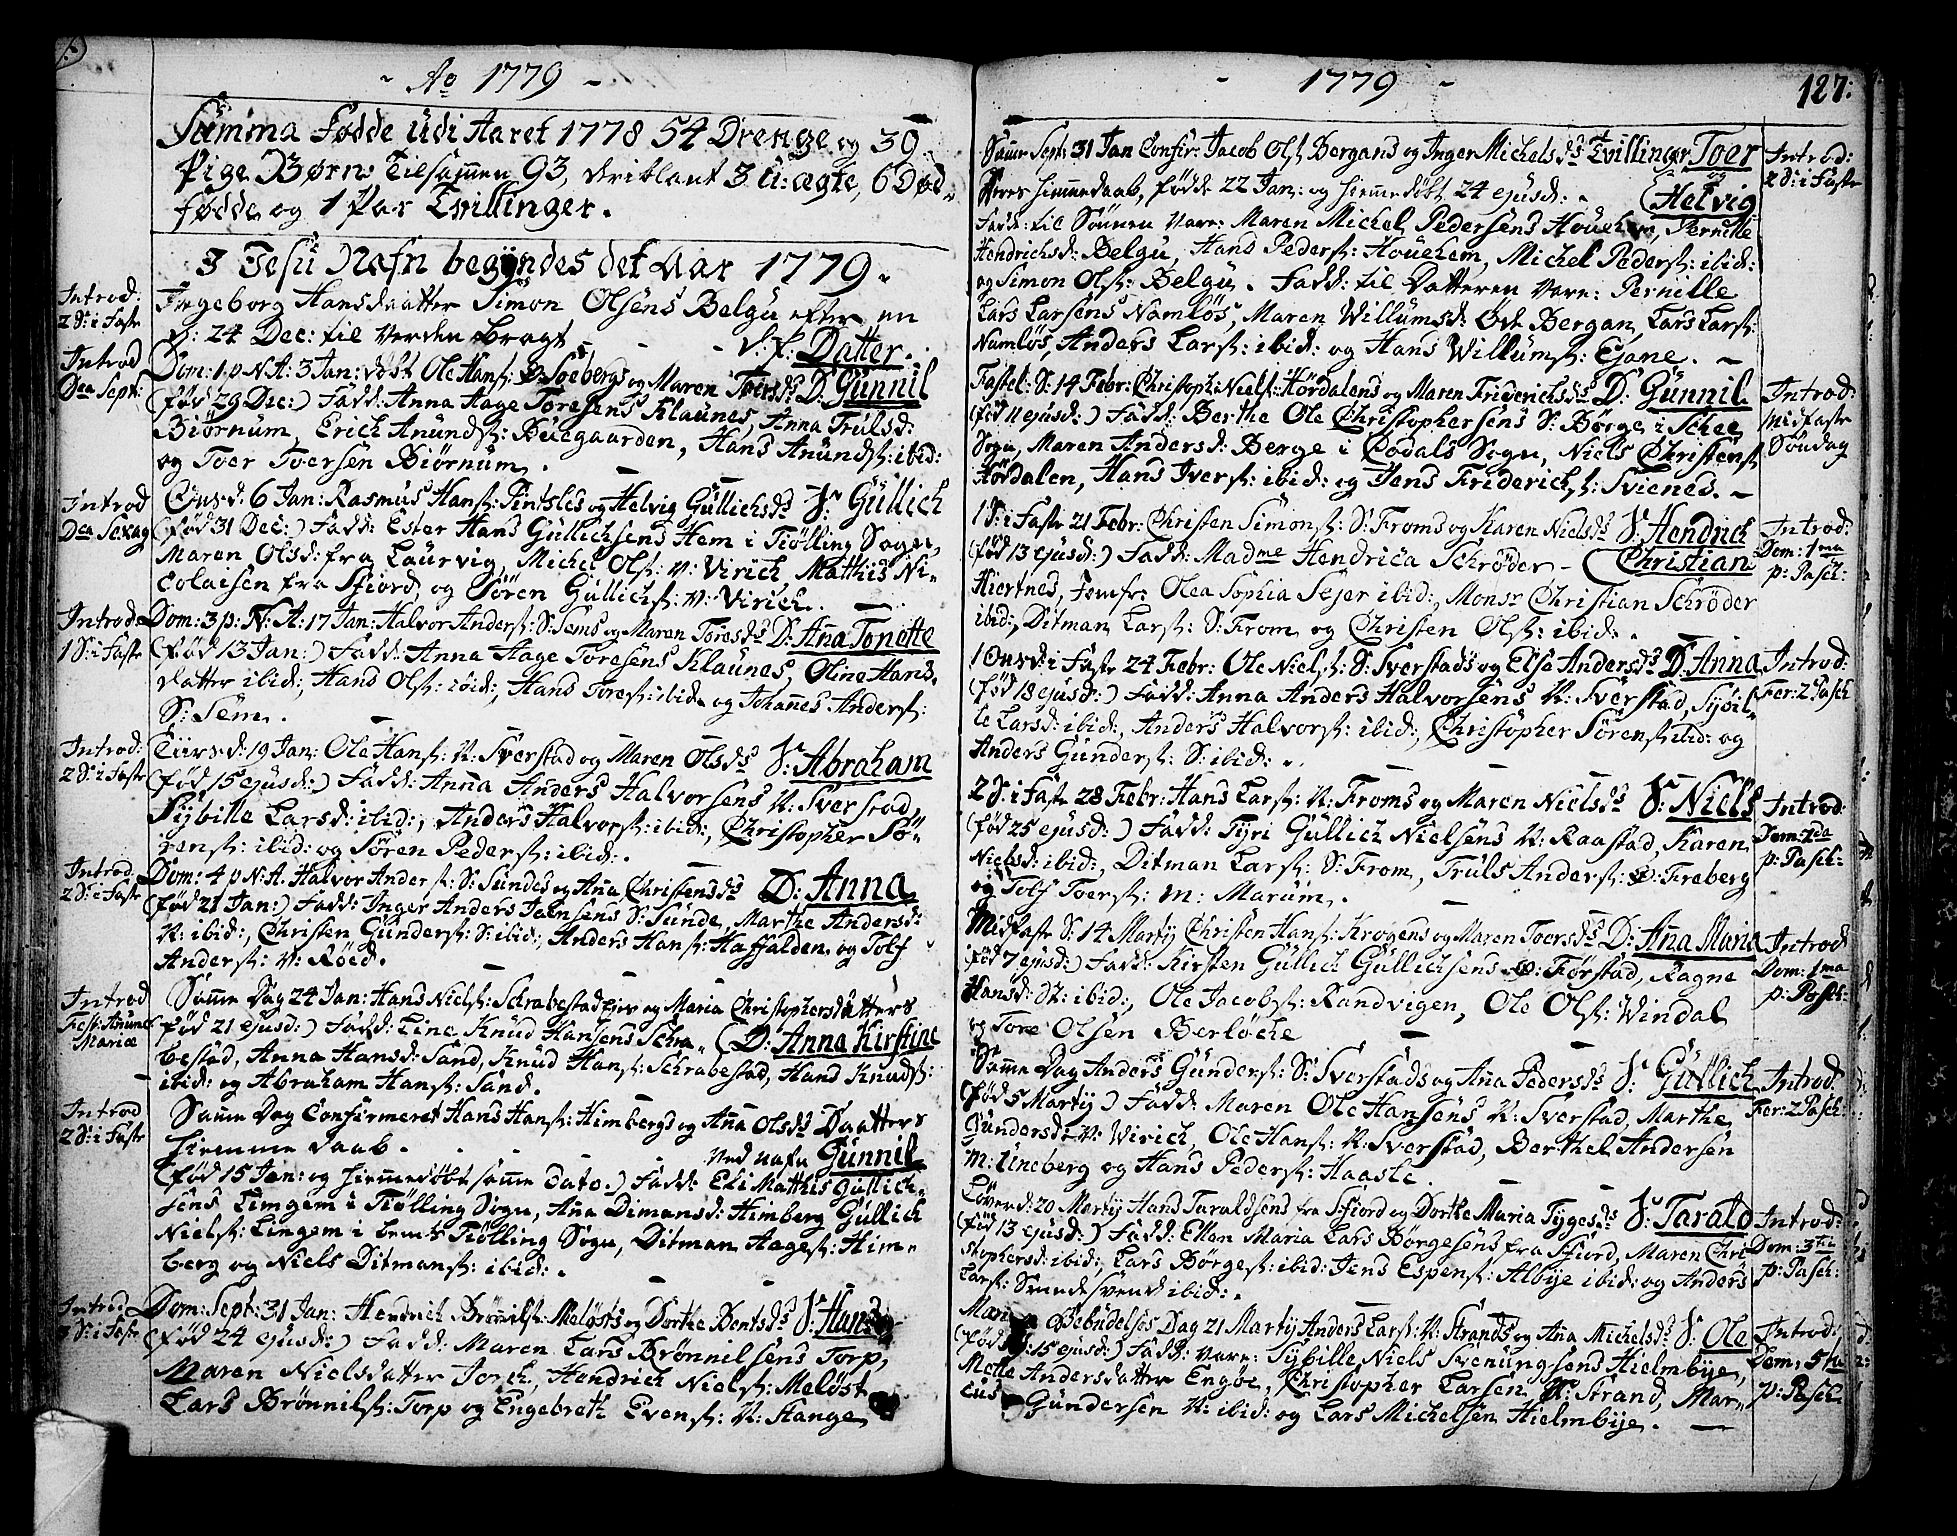 - Ao 1779 -
Summa Fødde udi Aaret 1778 54 Drenge og 39
Pige Børn Tilsammen 93, deriblant 3 u: ægte, 6 Død-
fødde og 1 Par Tvillinger.
I Jesu Nafn begyndes det Aar 1779.
Introd:
2 S: i Faste
Ingeborg Hansdaatter Simon Olsens Belgu efter en
d: 24 Dec: til Verden bragt - - - d: f: Datter.
Introd
Dca Sept:
Dom: 1 p N: A: 3 Jan: døbt Ole Hans: Soebergs og Maren Toersds D: Gunnil
(fød 29 Dec:) Fadd: Anna Aage Toresens Klaunes, Anna Truls d:
Biørnum, Erich Anunds: Buegaarden, Hans Anunds: ibid:
og Toer Toersen Biørnum.
Introd
Dca Sexag
Onsd: 6 Jan: Rasmus Hans: Pintsles og Helvig Gullichsds S: Gullich
(fød 31 Dec:) Fadd: Ester Hans Gullichsens Hem i Tiølling Sogn,
Maren Olsd: fra Laurvig, Michel Ols: V: Virich, Mathis Ni-
colaisen fra Sfiord, og Søren Gullichs: V: Virich.
Introd
1 S: i Faste
Dom: 3 p: N: A: 17 Jan: Halvor Anders: S: Sems og Maren Toresds D: Aña Tonette
(fød 13 Jan:) Fadd: Anna Aage Toresens Klaunes, Oline Hans-
datter ibid:, Hans Ols: ibid:, Hans Tores: ibid: og Johañes Anders:
S: Sem.
Introd:
2 S: i Faste
Tiirsd: 19 Jan: Ole Hans: N: Sverstad og Maren Olsds S: Abraham
(fød 15 ejusd:) Fadd: Anna Anders Halvorsens N: Sverstad,
Sybille Larsd: ibid:, Anders Halvors: ibid:, Christopher Sø-
rens: ibid: og Søren Peders: ibid:.
Introd
2 S: i Faste
Dom: 4 p N: A. Halvor Anders: S: Sundes og Aña Christensds D: Anna
(fød 21 Jan:) Fadd: Inger Anders Jahnsens S: Sunde, Marthe Andersd:
N: ibid:, Christen Gunders: S: ibid:, Anders Hans: Haffialden, og Tolf
Anders: V: Røed.
Introd
Fest: Anunc
Mariæ
Samme Dag 24 Jan: Hans Niels: Schrabestad Eier og Maria Christophersdatters
(fød 21 ejusd:) Fadd: Line Knud Hansens Schra- (D: Anna Kirstine
bestad, Anna Hansd: Sand, Knud Hans: Schrabestad, Hans Knuds:
ibid: og Abraham Hans: Sand.
Introd
2 S: i Faste
Samme Dag Confirmeret Hans Hans: Himbergs og Aña Olsds Daatters
Hiemme daab. - - - Ved nafn Gunnil
(fød 15 Jan: og hiemmedøbt samme Dato.) Fadd: Eli Mathis Gullich-
sens Limgem i Tiølling Sogn, Aña Dimansd: Himberg, Gullich
Niels: Lingem i bemte Tiølling Sogn, Ditman Aages: Him-
berg og Niels Ditmans: ibid:.
Introd
3 S: i Faste
Dom: Sept: 31 Jan: Hendrich Brønnils: Meløsts og Dorthe Bentsds S: Hans
(fød 24 ejusd:) Fadd: Maren Lars Brønnilsens Torp,
Maren Nielsdatter Jorch, Hendrich Niels: Meløst
Lars Brønnils: Torp og Engebreth Evens: N: Hange
- 1779 -
127:
Samme Sept: 31 Jan Confir: Jacob Ols: Bergans og Inger Michelsds Tvillinger Toer
og
Deres hiemmedaab, fødde 22 Jan: og hiemmedøbt 24 ejusd: - (Helvig
Introd:
2 S: i Faste
Fadd: til Sønnen vare: Maren Michel Pedersens Houehem, Pernille
Hendrichsd: Belgu, Hans Peders: Houehem, Michel Peders: ibid:
og Simon Ols: Belgu. Fadd: til Datteren vare: Pernille
Lars Larsens Namløs, Maren Willumsd: Øde Bergan, Lars Lars:
Namløs, Anders Lars: ibid: og Hans Willums: Ejane. -
Fastel: S: 14 Febr: Christoph: Niels: Hørdalens og Maren Friderichsds D: Gunnil
(fød 11 ejusd:) Fadd: Berthe Ole Christophersens S: Børge i Schee
Sogn, Maren Andersd: Berge i Codals Sogn, Niels Christens:
Hørdalen, Hans Ivers: ibid: og Jens Friderichs: Svienes. -
Introd:
Midfaste
Søndag
1 S: i Faste 21 Febr: Christen Simons: S: Froms og Karen Nielsds S: Hendrich
(fød 13 ejusd:) Fadd: Madme Hendrica Schrøder - (Christian
Hiertnes, Jomfr: Olea Sophia Sejer ibid:, Monsr Christian Schrøder
ibid:, Ditman Lars: S: From og Christen Ols: ibid:.
Introd:
Dom: 1ma
p: Pasch:
1 Onsd: i Faste 24 Febr: Ole Niels: S: Sverstads og Elsa Andersds D: Anna
(fød 18 ejusd:) Fadd: Anna Anders Halvorsens N: Sverstad, Sybil-
le Larsd: ibid:, Anders Halvors: ibid:, Christopher Sørens: ibid: og
Anders Gunders: S: ibid:.
Introd:
Fer: 2 Pasch
2 S: i Faste 28 Febr: Hans Lars: N: Froms og Maren Nielsds S: Niels
(fød 25 ejusd:) Fadd: Tyri Gullich Nielsens N: Raastad, Karen
Nielsd: ibid:, Ditman Lars: S: From, Truls Anders: Freberg
og Tolf Toers: M: Marum.
Introd:
Dom: 2da
p: Pasch:
Midfaste S: 14 Martij Christen Hans: Krogens og Maren Toersds D: Aña Maria
(fød 7 ejusd:) Fadd: Kirsten Gullich Gullichsens Førstad, Ragne
Hansd: St: ibid:, Ole Jacobs: Randvigen, Ole Ols: Windal
og Tore Olsen Berløche
Introd
Dom: 1ma
p: Pasch:
Samme Dag Anders Gunders: S: Sverstads og Aña Pedersds S: Gullich
(fød 5 Martij) Fadd: Maren Ole Hansens N: Sverstad, Marthe
Gundersd: V: Wirich, Ole Hans: N: Sverstad, Berthel Andersen
M: Uneberg og Hans Peders: Haasle.
Introd:
Fer: 2 Pasch:
Løverd: 20 Martij Hans Taraldsens fra Sfiord og Dorthe Maria Tygesds S: Tarald
(fød 13 ejusd:) Fadd: Ellen Maria Lars Børgesens fra Sfiord, Maren Chri-
stophersd: ibid:, Lars Børges: ibid: Jens Espens: Albye ibid: og Anders
Lars: Smedesvend ibid:.
Introd:
Dom: 3tia
p: Pasch:
Mariæ Bebudelses Dag 21 Martij Anders Lars: N: Strands og Aña Michelsds S: Ole
(fød 15 ejusd:) Fadd: vare: Sybille Niels Svenungsens Hielmbye,
Mette Andersdatter Engøe, Christopher Larsen N: Strand, Mar-
cus Gundersen N: ibid: og Lars Michelsen Hielmbye. -
Introd:
Dom: 5ta
p: Pasch: